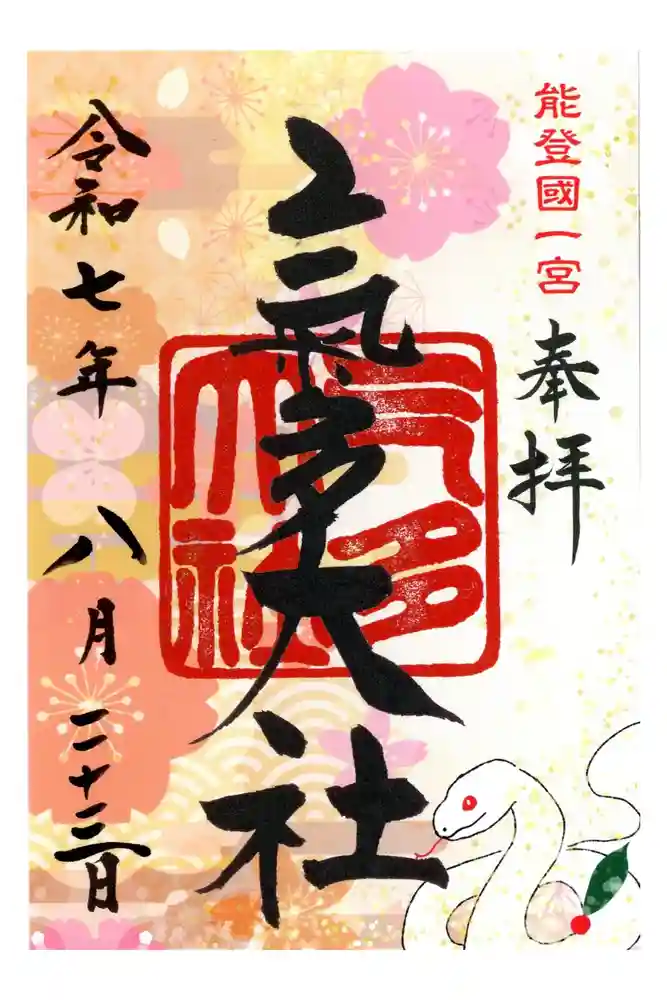 能登國一宮
奉拝
氣多大社
气多
大社
令和七年八月二十三日